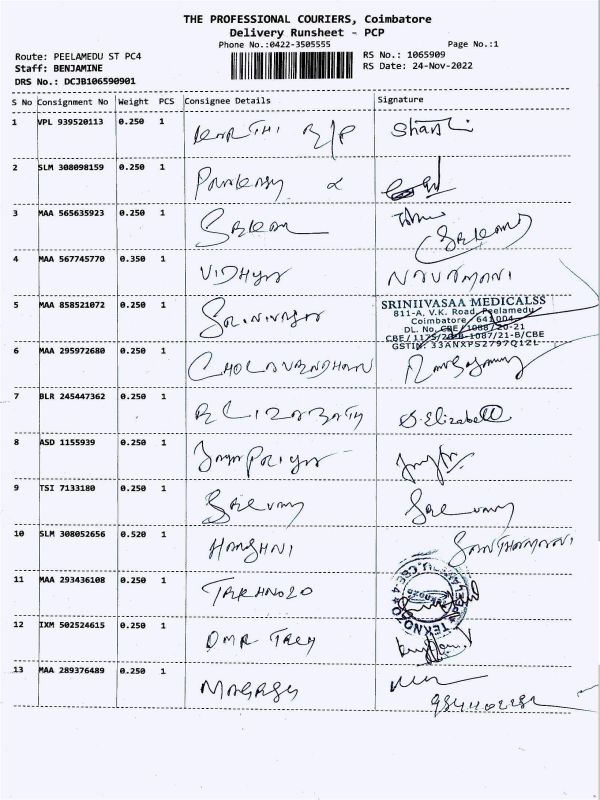 THE PROFESSIONAL COURIERS, Coimbatore
Delivery Runsheet - PCP
Phone No.:0422-3505555 Page No.:1
Route: PEELAMEDU ST PC4 RS No.: 1065909
Staff: BENJAMINE RS Date: 24-Nov-2022
DRS No.: DCJB106590901
S No Consignment No Weight PCS Consignee Details Signature
1 VPL 939520113 0.250 1
2 SLM 308098159 0.250 1
3 MAA 565635923 0.250 1
4 MAA 567745770 0.350 1 VIDHYA NAVAMANI
SRINIIVASAA MEDICALSS
5 MAA 858521072 0.250 1 811-A, V.K. Road, Peelamedu
Coimbatore 641004
DL. No. CBE/1088/20-21
CBE/1175/20-B-1087/21-B/CBE
GSTIN: 33ANXPS2797Q1ZL
6 MAA 295972680 0.250 1
7 BLR 245447362 0.250 1 ELIZABATH S.Elizabeth
8 ASD 1155939 0.250 1 Jaya PRIYA
9 TSI 7133180 0.250 1
10 SLM 308052656 0.520 1 HARSHNI SANTHAMANI
11 MAA 293436108 0.250 1
12 IXM 502524615 0.250 1
13 MAA 289376489 0.250 1